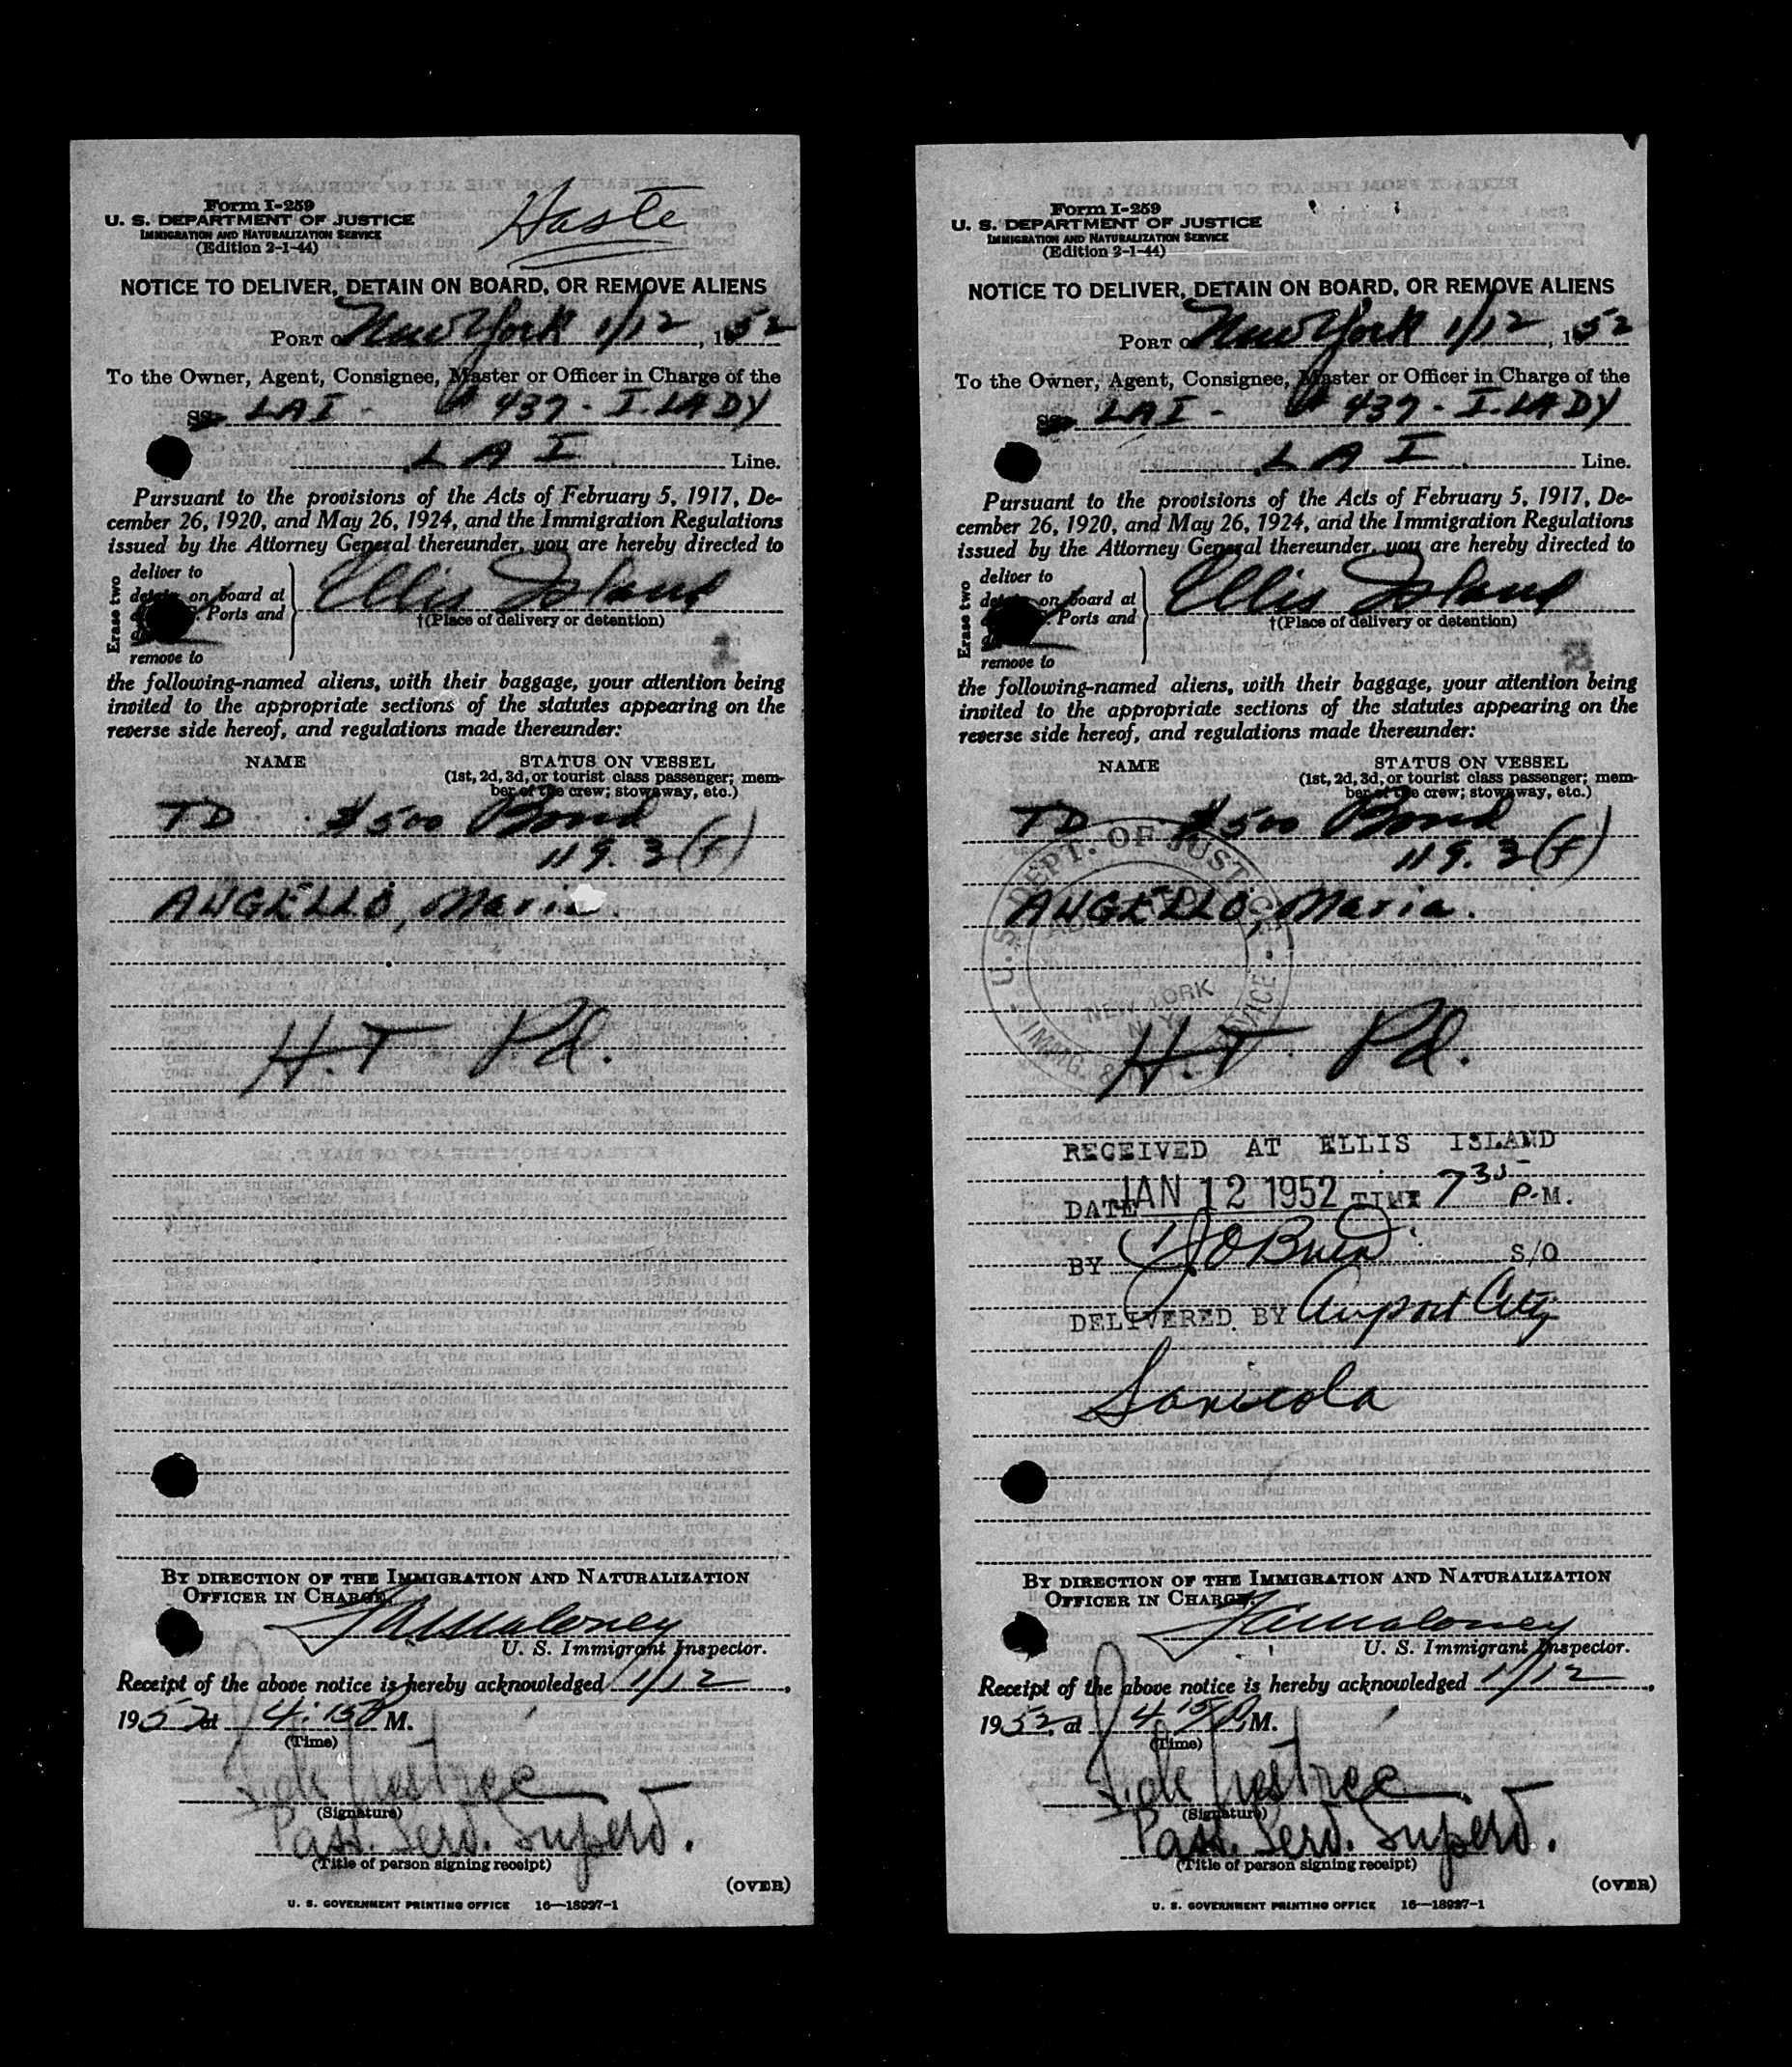 Form I-259
U. S. DEPARTMENT OF JUSTICE
IMMIGRATION AND NATURALIZATION SERVICE
(Edition 2-1-44)
Haste
NOTICE TO DELIVER, DETAIN ON BOARD, OR REMOVE ALIENS
PORT O New York 1/12, 1952
To the Owner, Agent, Consignee, Master or Officer in Charge of the
SS LAI - 437 - I.LADY
LAI Line.
Pursuant to the provisions of the Acts of February 5, 1917, De-
cember 26, 1920, and May 26, 1924, and the Immigration Regulations
issued by the Attorney General thereunder, you are hereby directed to
Erase two
deliver to
on board at Ellis Island
Ports and
†(Place of delivery or detention)
1
remove to
the following-named aliens, with their baggage, your attention being
invited to the appropriate sections of the statutes appearing on the
reverse side hereof, and regulations made thereunder:
NAME STATUS ON VESSEL
(1st, 2d, 3d, or tourist class passenger; mem-
ber of the crew; stowaway, etc.)
TD $500 Bond
119.3(f)
ANGELLO, Maria
H.T Pd.
BY DIRECTION OF THE IMMIGRATION AND NATURALIZATION
OFFICER IN CHARGE.
Maloney
U. S. Immigrant Inspector.
Receipt of the above notice is hereby acknowledged 1/12,
1952 at 4:15 P M.
(Time)
(Signature)
Pass. Serv. Superv.
(Title of person signing receipt)
(OVER)
U. S. GOVERNMENT PRINTING OFFICE 16—18927-1
Form I-259
U. S. DEPARTMENT OF JUSTICE
IMMIGRATION AND NATURALIZATION SERVICE
(Edition 2-1-44)
NOTICE TO DELIVER, DETAIN ON BOARD, OR REMOVE ALIENS
PORT O New York 1/12, 1952
To the Owner, Agent, Consignee, Master or Officer in Charge of the
SS LAI - 437 - I.LADY
LAI Line.
Pursuant to the provisions of the Acts of February 5, 1917, De-
cember 26, 1920, and May 26, 1924, and the Immigration Regulations
issued by the Attorney General thereunder, you are hereby directed to
Erase two
deliver to
on board at Ellis Island
Ports and
†(Place of delivery or detention)
2
remove to
the following-named aliens, with their baggage, your attention being
invited to the appropriate sections of the statutes appearing on the
reverse side hereof, and regulations made thereunder:
NAME STATUS ON VESSEL
(1st, 2d, 3d, or tourist class passenger; mem-
ber of the crew; stowaway, etc.)
TD $500 Bond
119.3(f)
ANGELLO, Maria.
U.S. DEPT. OF JUSTICE
NEW YORK
N.Y.
IMMIG. & SERVICE
H.T. Pd.
RECEIVED AT ELLIS ISLAND
DATE JAN 12 1952 TIME 7 35 P.M.
BY O'Brien S/O
DELIVERED BY Airport City
BY DIRECTION OF THE IMMIGRATION AND NATURALIZATION
OFFICER IN CHARGE.
Maloney
U. S. Immigrant Inspector.
Receipt of the above notice is hereby acknowledged 1/12,
1952, at 4 15 P.M.
(Time)
(Signature)
Pass. Serv. Superv.
(Title of person signing receipt)
(OVER)
U. S. GOVERNMENT PRINTING OFFICE 16—18927-1